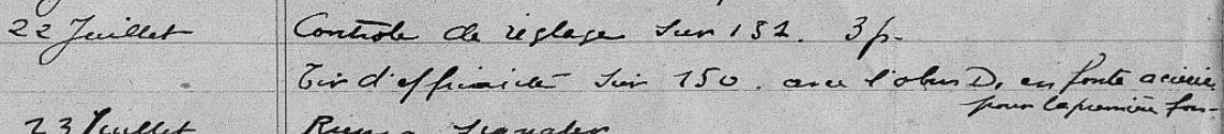 22 Juillet Contrôle de réglage sur 132. 3 p.
Tir d'efficacité sur 150. avec l'obus D. en fonte aciérée
pour la première fois-
23 Juillet Rien à signaler